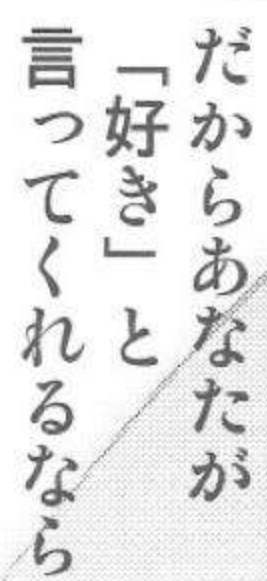 だからあなたが
「好き」と
言ってくれるなら